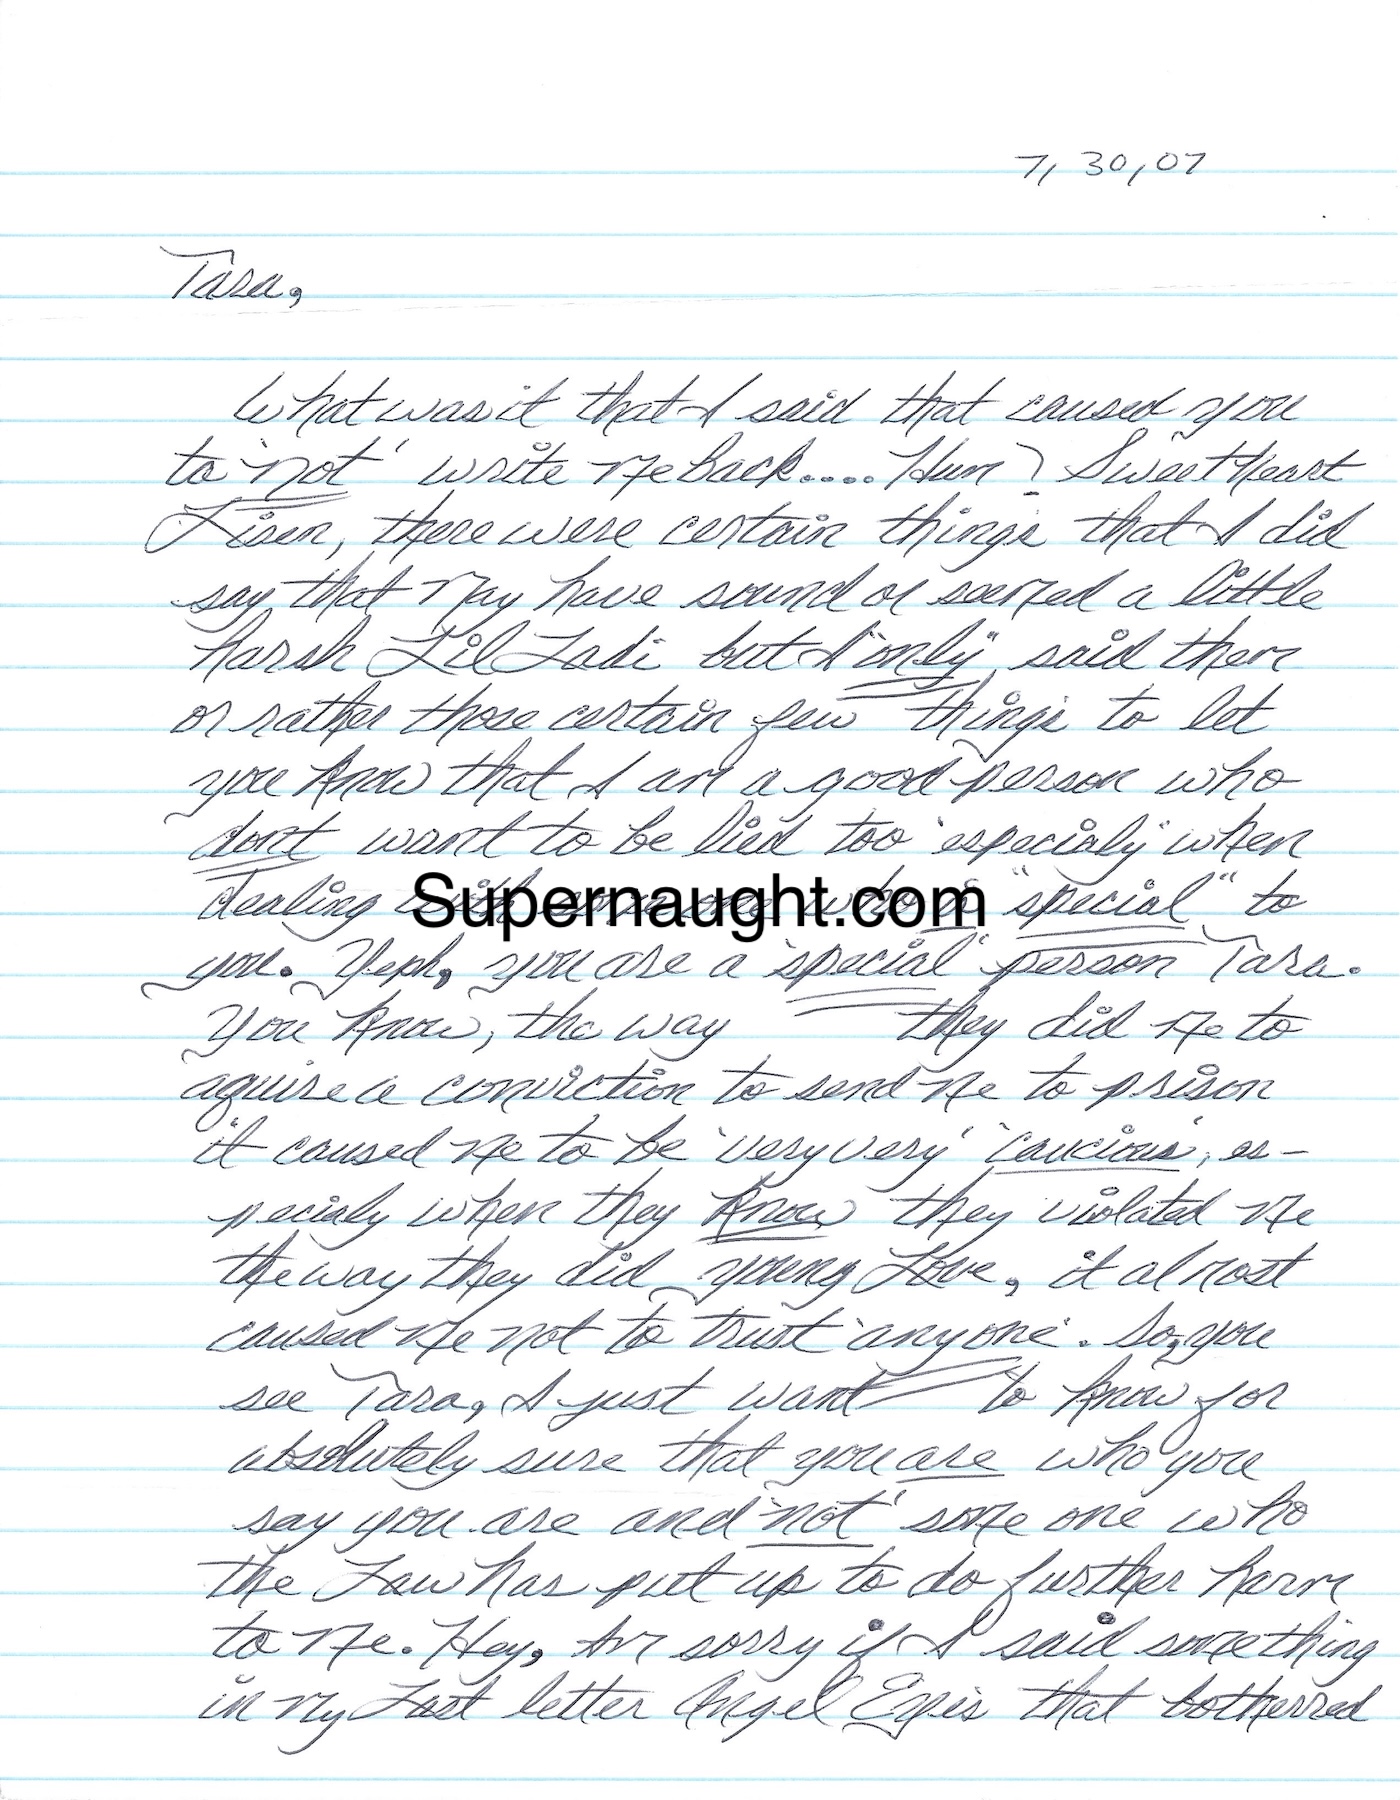 7, 30, 07
Tara,
What was it that I said that caused you
to 'not' write me back.... Hum? SweetHeart
Lisen, there were certain things that I did
say that may have sound or seemed a little
harsh Lil Ladi but I "only" said them
or rather those certain few things to let
you know that I am a good person who
dont want to be lied too 'especialy' when
dealing with some one who is "special" to
you. Yeph, you are a 'special' person Tara.
You know, the way they did me to
aquire a conviction to send me to prison
it caused me to be 'very very' 'caucious', es-
pecialy when they know they violated me
the way they did young Love, it almost
caused me not to trust 'anyone'. So, you
see Tara, I just want to know for
absolutely sure that you are who you
say you are and 'not' some one who
the Law has put up to do further harm
to me. Hey, Am sorry if I said something
in my Last letter Angel Eyes that botherred
Supernaught.com